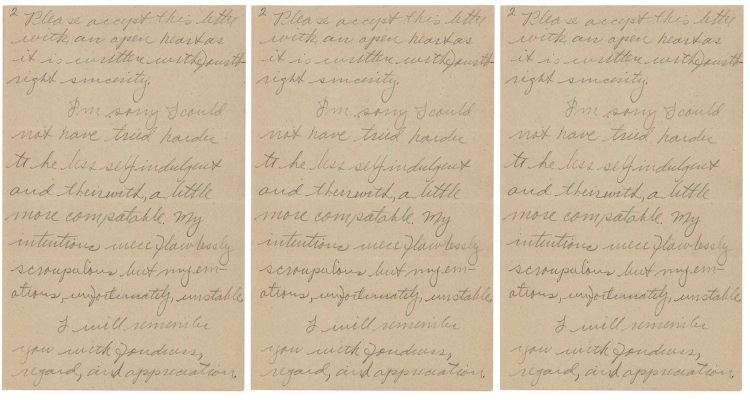 2 Please accept this letter
with an open heart as
it is written with
right sincerity.
I'm sorry I could
not have tried harder
to be less self indulgent
and therewith, a little
more compatable. My
intentions were flawlessly
scroupulous but my em-
otions, unfortunately, unstable
I will remember
you with fondness,
regard, and appreciation.
2 Please accept this letter
with an open heart as
it is written with
right sincerity.
I'm sorry I could
not have tried harder
to be less self indulgent
and therewith, a little
more compatable. My
intentions were flawlessly
scroupulous but my em-
otions, unfortunately, unstable
I will remember
you with fondness,
regard, and appreciation.
2 Please accept this letter
with an open heart as
it is written with
right sincerity.
I'm sorry I could
not have tried harder
to be less self indulgent
and therewith, a little
more compatable. My
intentions were flawlessly
scroupulous but my em-
otions, unfortunately, unstable
I will remember
you with fondness,
regard, and appreciation.